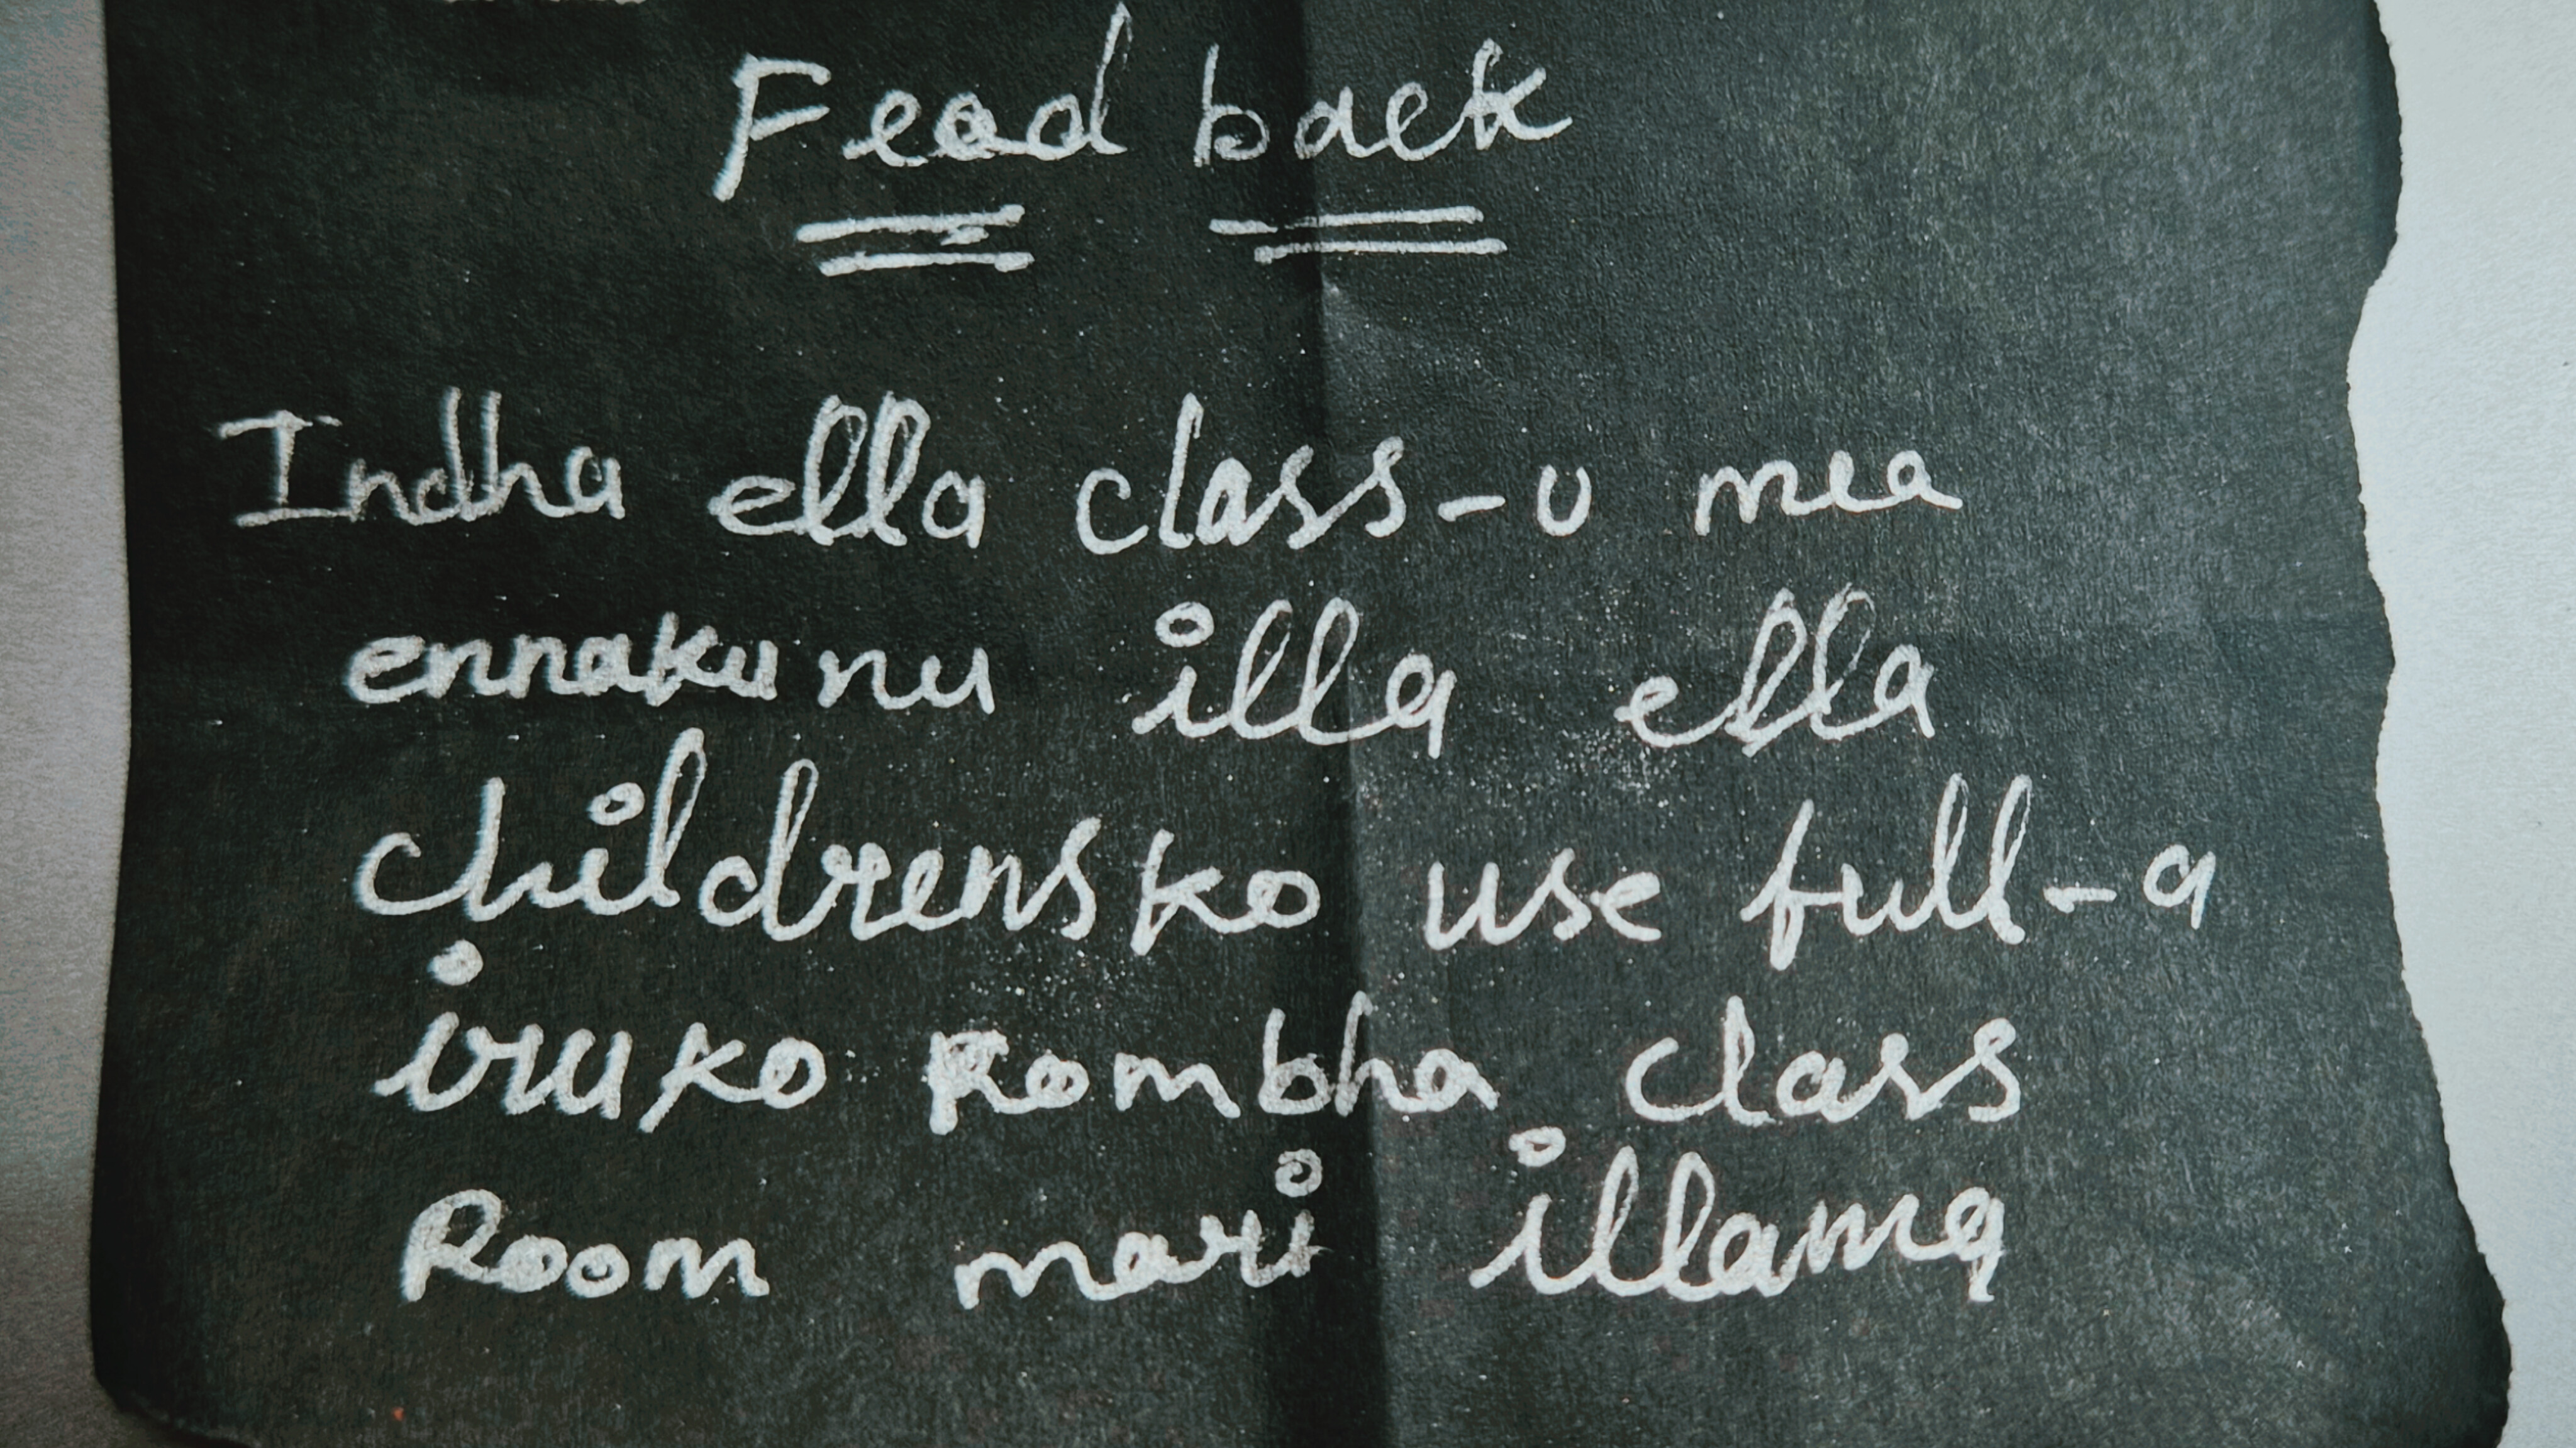 Feed back
Indha ella class-u mea
ennaku nu illa ella
childrens ko use full-a
iruko Rombha class
Room mari illama